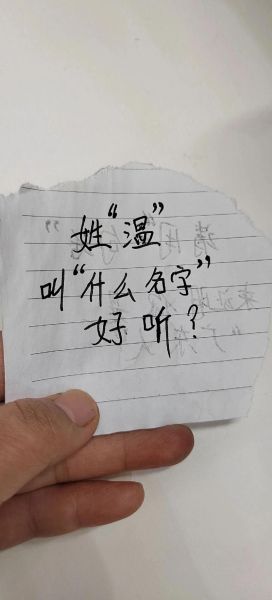 姓“温”
叫“什么名字”
好听？